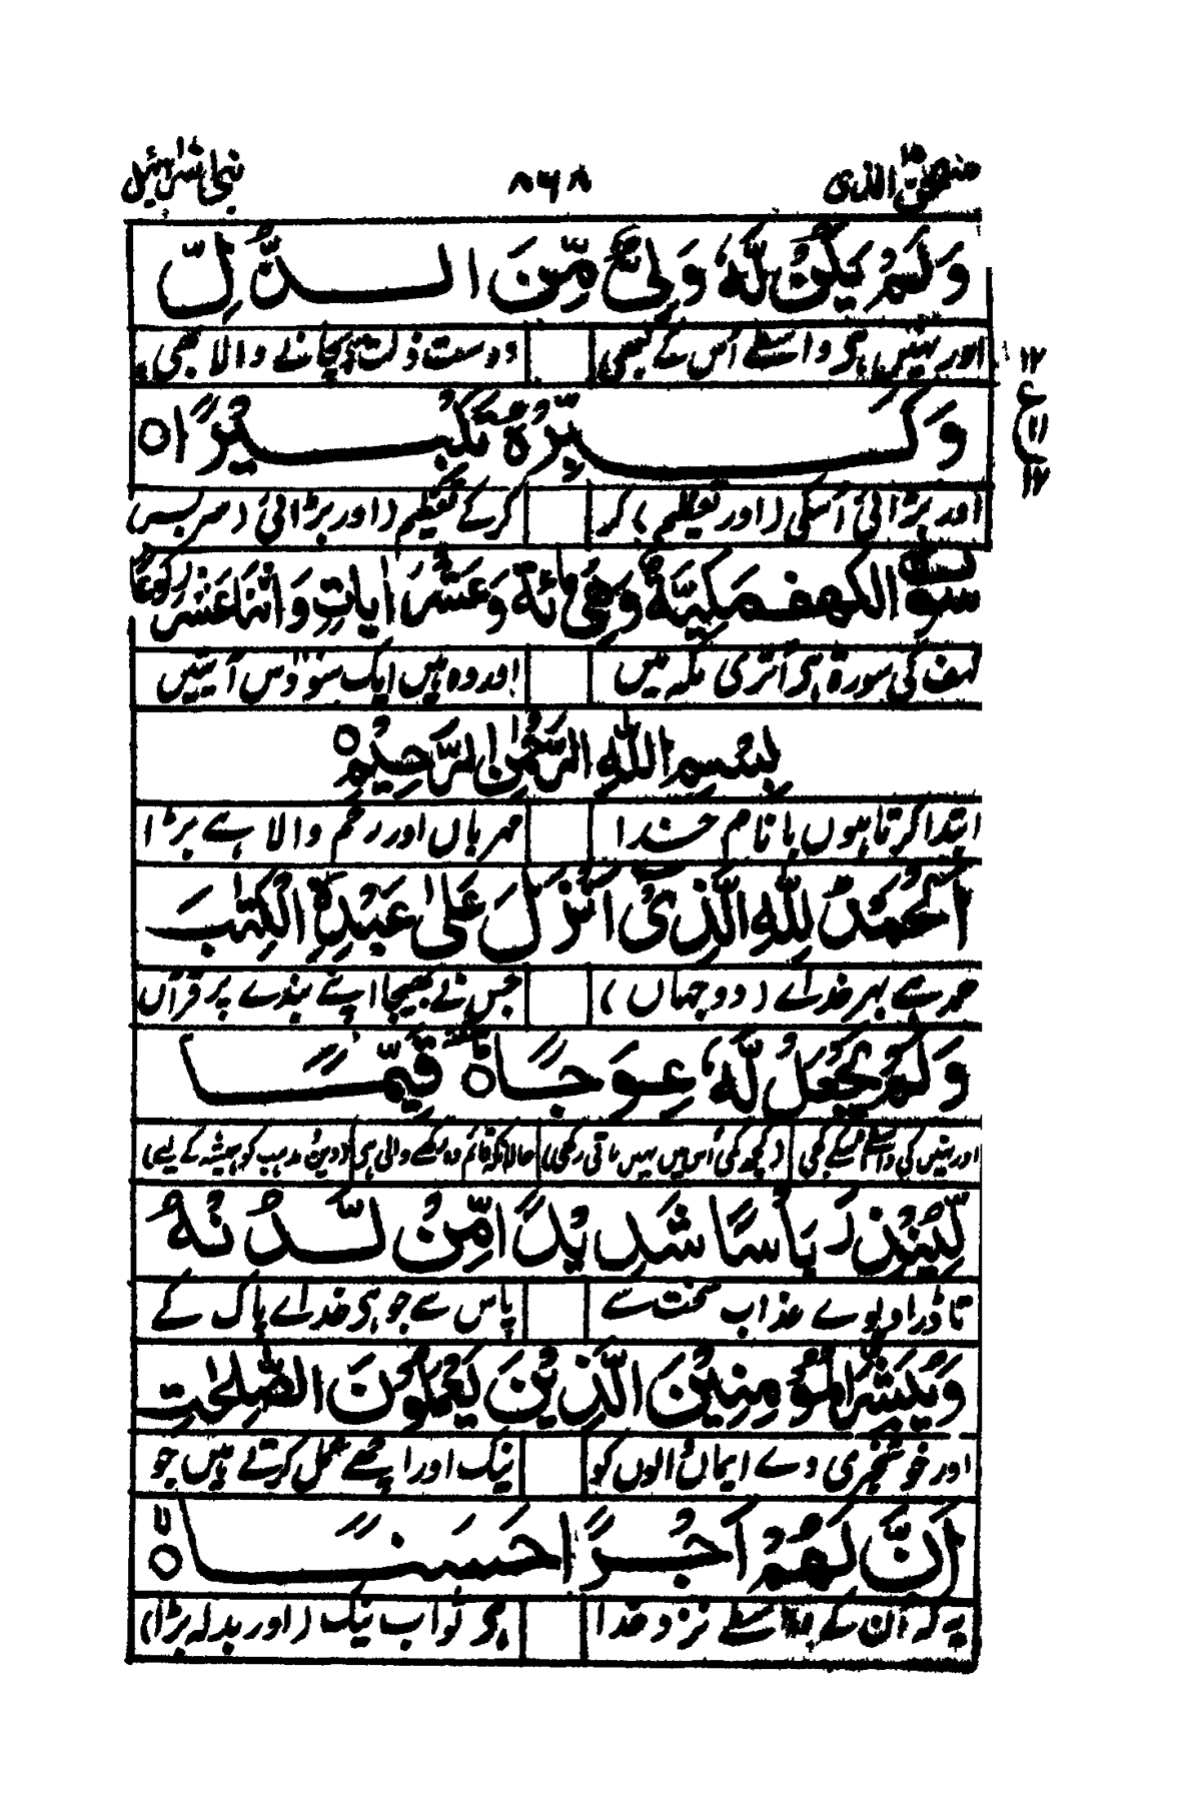 سبحٰن الذی ۱۵ ۸۶۸ بنی اسرآئیل
وَلَمْ يَكُنْ لَّهٗ وَلِيٌّ مِّنَ الذُّلِّ
اور نہیں ہی واسطے اُس کے کبھی دوست ذلت بچانے والا بھی
وَكَبِّرْهُ تَكْبِيْرًا ○
اور بڑائی اُسکی (اور تعظیم) کر کرکے تعظیم (اور بڑائی (سربسر)
۱۲ ع ۱۱ ۱۲
سورة الكهف مكيّة وهي مائة وعشر اٰيات واثنا عشر ركوعًا
کہف کی سورة ہی اُتری مکہ میں اور وہ ہیں ایک سو دس آیتیں
بِسْمِ اللّٰهِ الرَّحْمٰنِ الرَّحِيْمِ ○
ابتدا کرتا ہوں با نام خدا مہرباں اور رحم والا ہے بڑا
اَلْحَمْدُ لِلّٰهِ الَّذِيْٓ اَنْزَلَ عَلٰى عَبْدِهِ الْكِتٰبَ
حمد ہے بہر خداے (دو جہاں) جس نے بھیجا اپنے بندے پر قرآں
وَلَمْ يَجْعَلْ لَّهٗ عِوَجًا ○ قَيِّمًا
اور نہیں کی واسطے اسکے کجی (کچھ کمی اُس میں نہیں باقی رکھی) حالانکہ قائم وہ رکھنے والی ہی (دین و مذہب کو ہمیشہ کے لیے)
لِّيُنْذِرَ بَاْسًا شَدِيْدًا مِّنْ لَّدُنْهُ
تا ڈراوے وہ عذاب سخت سے پاس سے جو ہی خداے پاک کے
وَيُبَشِّرَ الْمُؤْمِنِيْنَ الَّذِيْنَ يَعْمَلُوْنَ الصّٰلِحٰتِ
اور خوشخبری دے ایمان والوں کو نیک اور اچھے عمل کرتے ہیں جو
اَنَّ لَهُمْ اَجْرًا حَسَنًا ○ لا
یہ کہ اُن کے واسطے نزد خدا ہی ثواب نیک (اور بدلہ بڑا)